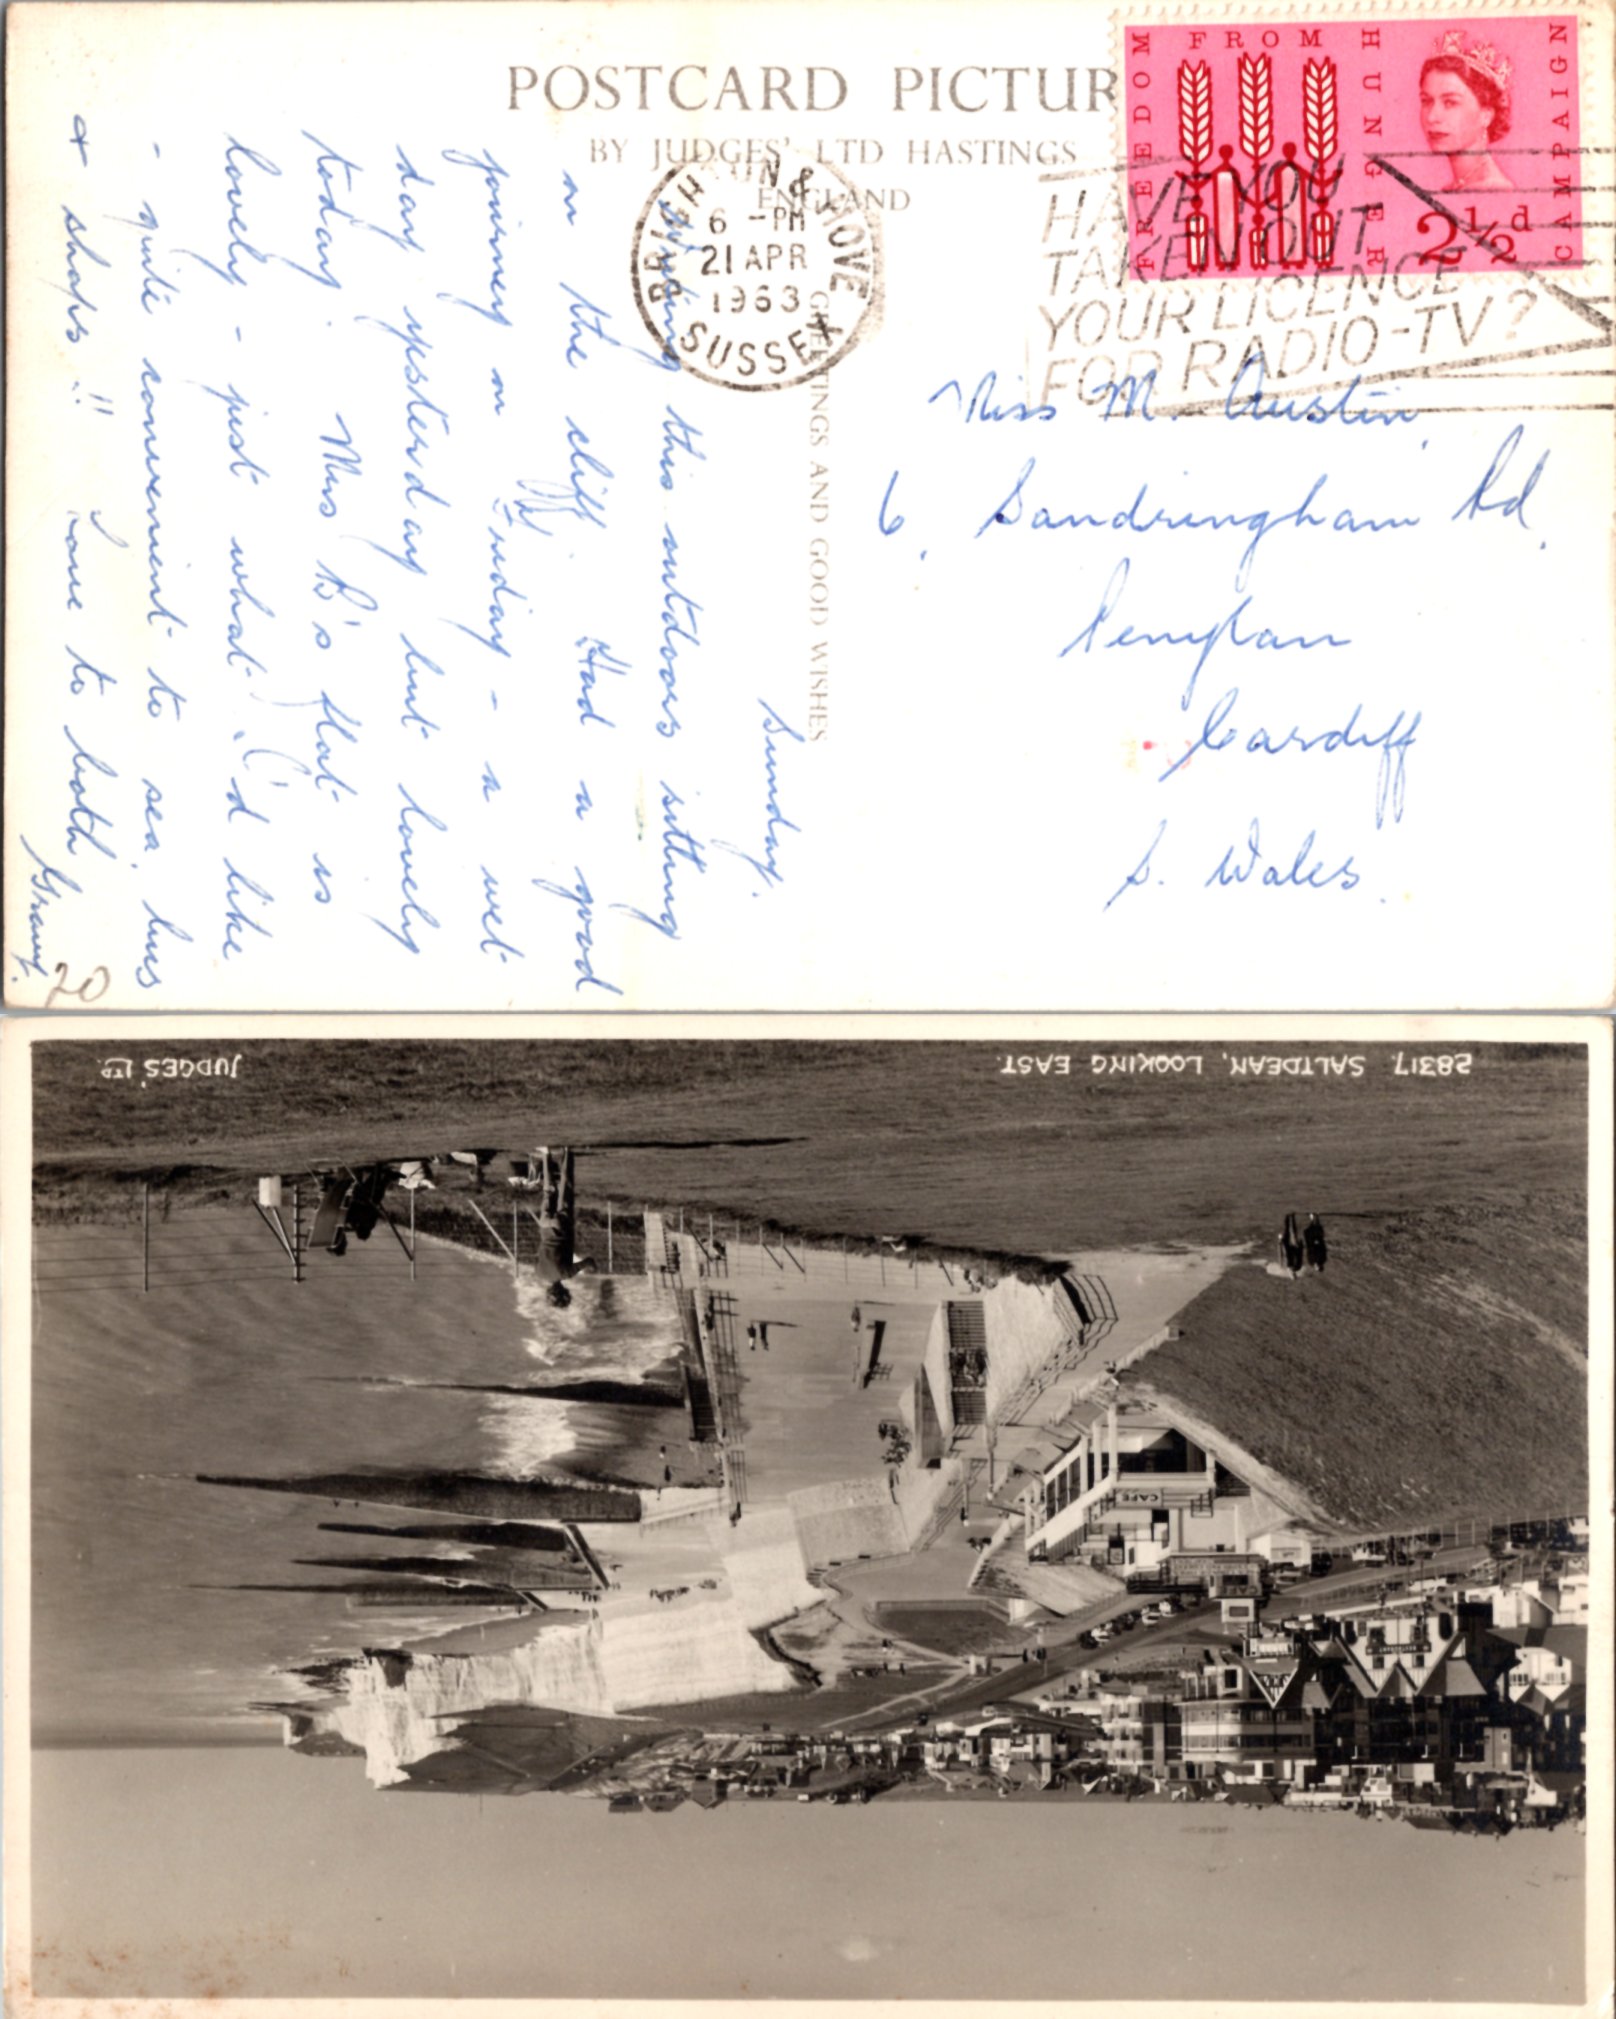 POSTCARD PICTUR
BY JUDGES' LTD HASTINGS
ENGLAND
GREETINGS AND GOOD WISHES
FREEDOM FROM HUNGER CAMPAIGN
2½d
BRIGHTON & HOVE
6 - PM
21 APR
1963
SUSSEX
HAVE YOU
TAKEN OUT
YOUR LICENCE
FOR RADIO-TV?
Miss M. Austin,
6, Sandringham Rd.
Penylan
Cardiff
S. Wales.
Sunday.
Writing this outdoors sitting
on the cliff. Had a good
journey on Friday - a wet
day yesterday but lovely
today. Mrs B's flat is
lovely - just what I'd like
- quite convenient to sea, bus
& shops!! Love to both
Granny.
20
28317. SALTDEAN, LOOKING EAST.
JUDGES' LTD.
CAFE
RESTAURANT